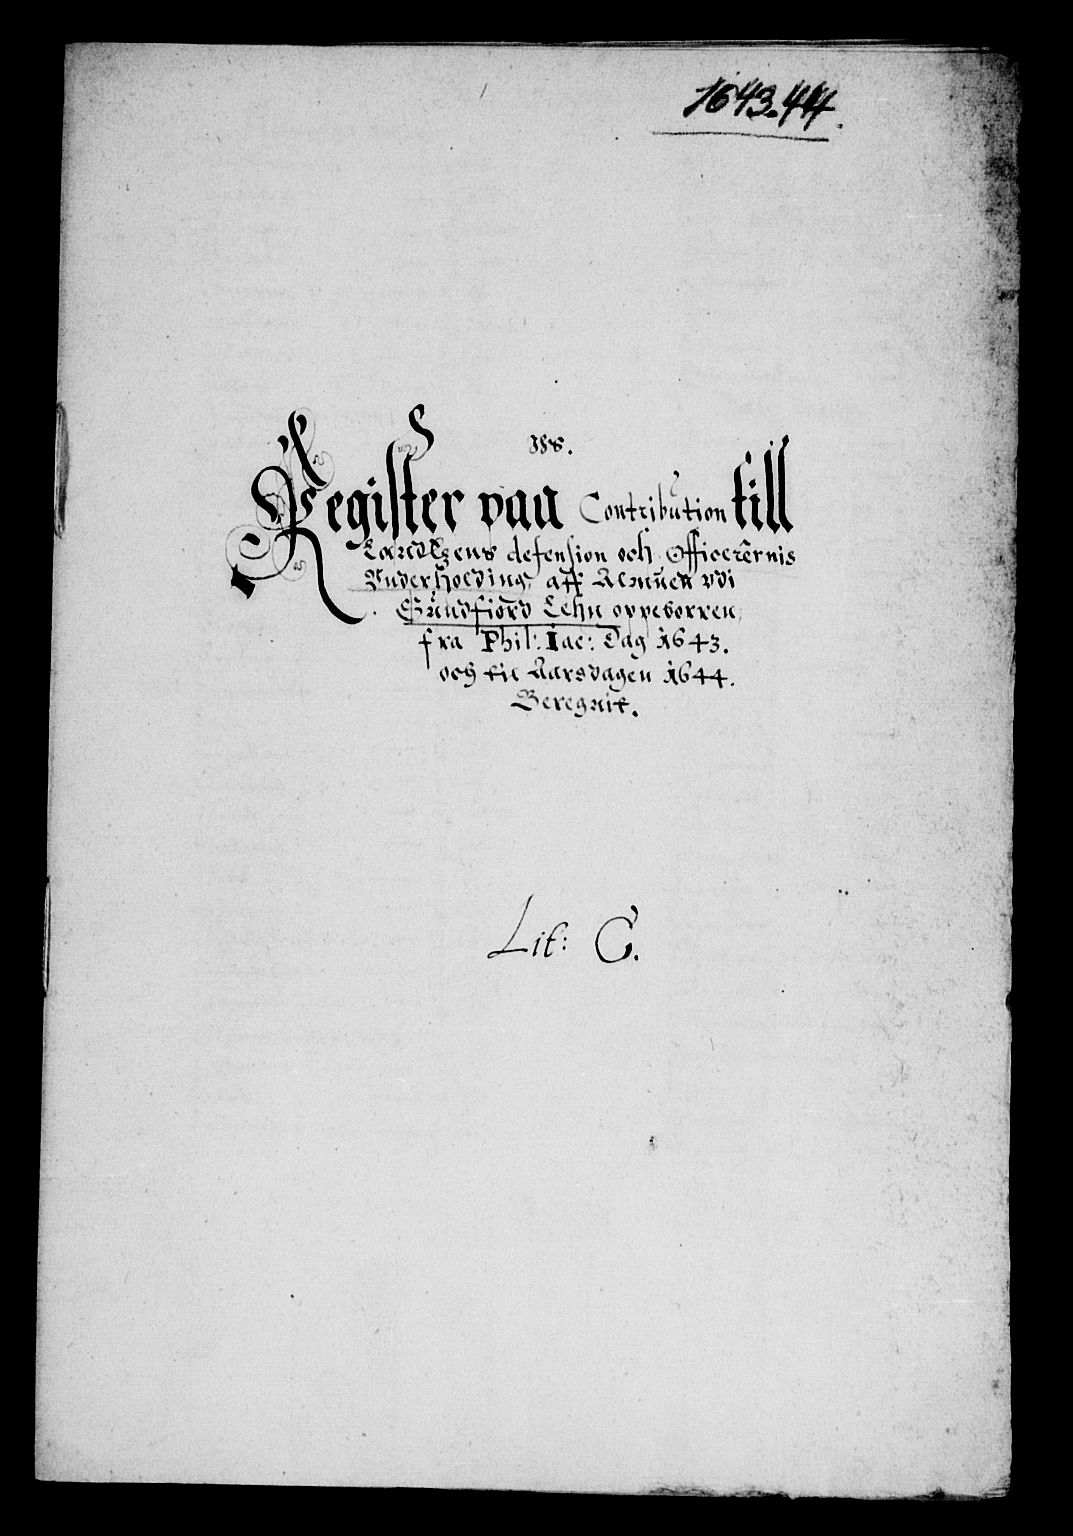 1643.44.
Register paa Contribution till
Landtzens defension och Officerernis
Vnderholding, aff Almuen vdi
Sundfiord Lehn oppeborren,
fra Phil: Iac: Dag 1643.
och til Aarsdagen 1644.
Beregnit.
Lit: C.